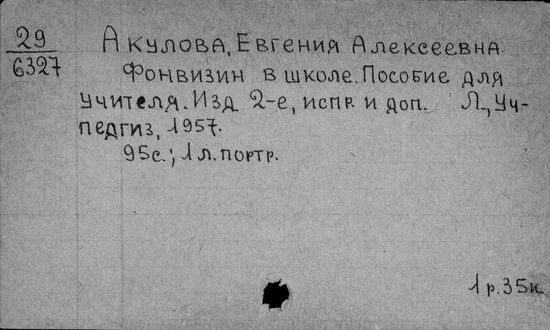 29
6327
Акулова, Евгения Алексеевна
Фонвизин в школе. Пособие для
учителя. Изд. 2-е, испр. и доп. Л., Уч-
педгиз, 1957.
95с.; 1 л. портр.
1 р. 35к.